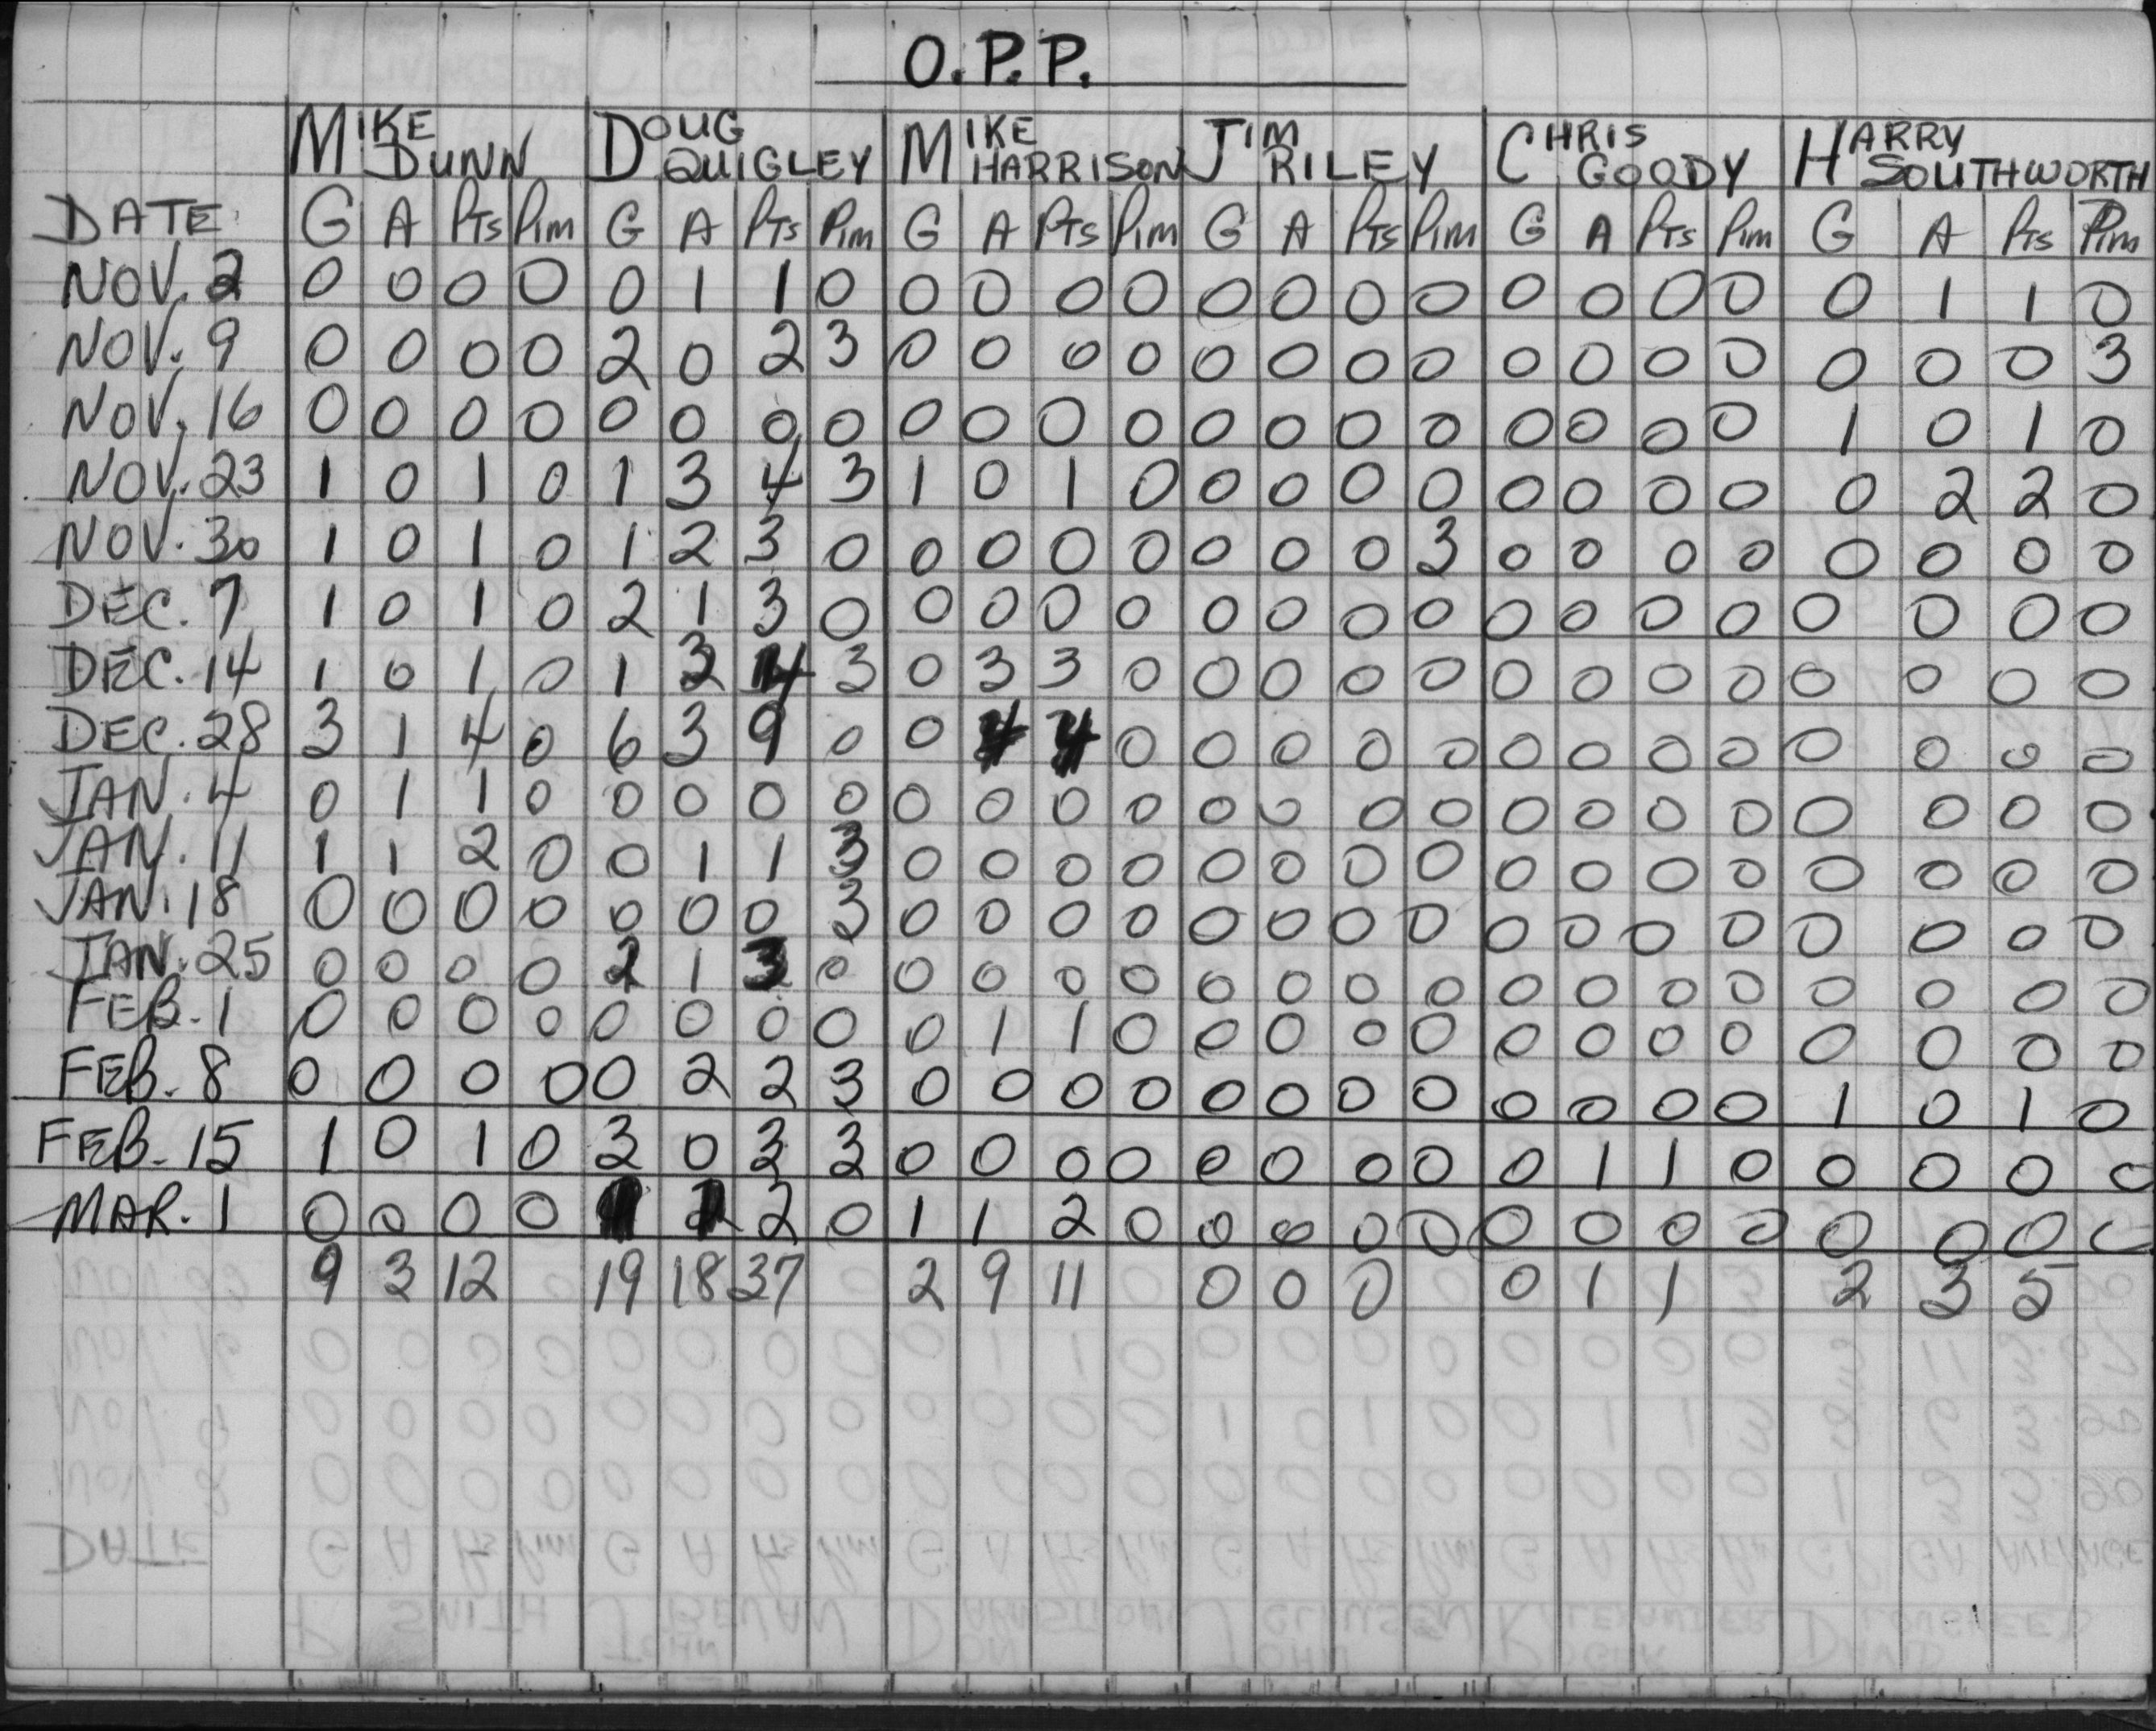 O.P.P.
MIKE DUNN DOUG QUIGLEY MIKE HARRISON JIM RILEY CHRIS GOODY HARRY SOUTHWORTH
DATE G A PTS PIM G A PTS PIM G A PTS PIM G A PTS PIM G A PTS PIM G A PTS PIM
NOV. 2 0 0 0 0 0 1 1 0 0 0 0 0 0 0 0 0 0 0 0 0 0 1 1 0
NOV. 9 0 0 0 0 2 0 2 3 0 0 0 0 0 0 0 0 0 0 0 0 0 0 0 3
NOV. 16 0 0 0 0 0 0 0 0 0 0 0 0 0 0 0 0 0 0 0 0 1 0 1 0
NOV. 23 1 0 1 0 1 3 4 3 1 0 1 0 0 0 0 0 0 0 0 0 0 2 2 0
NOV. 30 1 0 1 0 1 2 3 0 0 0 0 0 0 0 0 3 0 0 0 0 0 0 0 0
DEC. 7 1 0 1 0 2 1 3 0 0 0 0 0 0 0 0 0 0 0 0 0 0 0 0 0
DEC. 14 1 0 1 0 1 3 4 3 0 3 3 0 0 0 0 0 0 0 0 0 0 0 0 0
DEC. 28 3 1 4 0 6 3 9 0 0 4 4 0 0 0 0 0 0 0 0 0 0 0 0 0
JAN. 4 0 1 1 0 0 0 0 0 0 0 0 0 0 0 0 0 0 0 0 0 0 0 0 0
JAN. 11 1 1 2 0 0 1 1 3 0 0 0 0 0 0 0 0 0 0 0 0 0 0 0 0
JAN. 18 0 0 0 0 0 0 0 3 0 0 0 0 0 0 0 0 0 0 0 0 0 0 0 0
JAN. 25 0 0 0 0 2 1 3 0 0 0 0 0 0 0 0 0 0 0 0 0 0 0 0 0
FEB. 1 0 0 0 0 0 0 0 0 0 1 1 0 0 0 0 0 0 0 0 0 0 0 0 0
FEB. 8 0 0 0 0 0 2 2 3 0 0 0 0 0 0 0 0 0 0 0 0 1 0 1 0
FEB. 15 1 0 1 0 3 0 3 3 0 0 0 0 0 0 0 0 0 1 1 0 0 0 0 0
MAR. 1 0 0 0 0 2 0 1 1 2 0 0 0 0 0 0 0 0 0 0 0 0 0
9 3 12 19 18 37 2 9 11 0 0 0 0 1 1 2 3 5